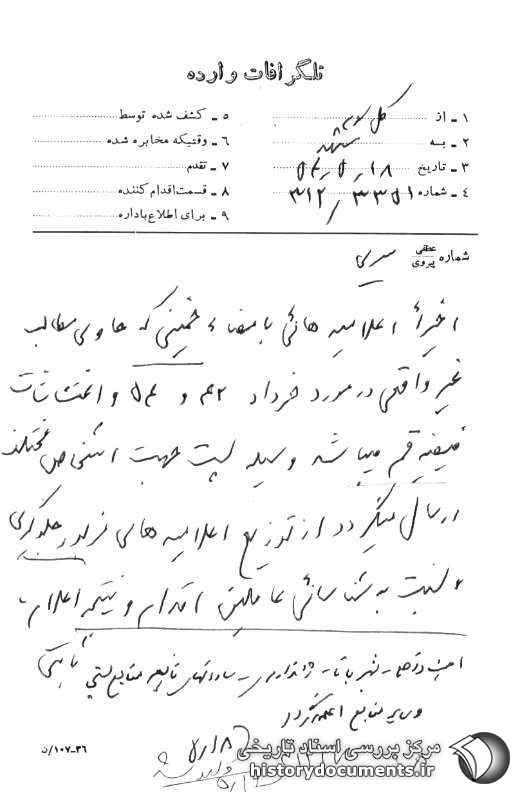 تلگرافات وارده
۱ ـ از کل ۳
۲ ـ به مشهد
۳ ـ تاریخ ۵۴٫۵٫۱۸
۴ ـ شماره ۳۱۲/۳۳۵۱
۵ ـ کشف شده توسط
۶ ـ وقتیکه مخابره شده
۷ ـ تقدم
۸ ـ قسمت اقدام کننده
۹ ـ برای اطلاع با داره
شماره عطفی پیروی سری
اخیراً اعلامیه هائی با امضاء خمینی که حاوی مطالب
غیر واقعی در مورد خرداد ۴۲ و ۵۴ و اغتشاشات
فیضیه قم میباشد وسیله پست جهت اشخاص مختلف
ارسال میگردد از توزیع اعلامیه های مزبور جلوگیری
و نسبت به شناسائی عاملین اقدام و نتیجه اعلام
شهربانی ـ ژاندارمری ـ منابع پستی
و سایر منابع اعلام گردد
۱۸
۳۶ـ۱۰۷/ن
مرکز بررسی اسناد تاریخی
historydocuments.ir